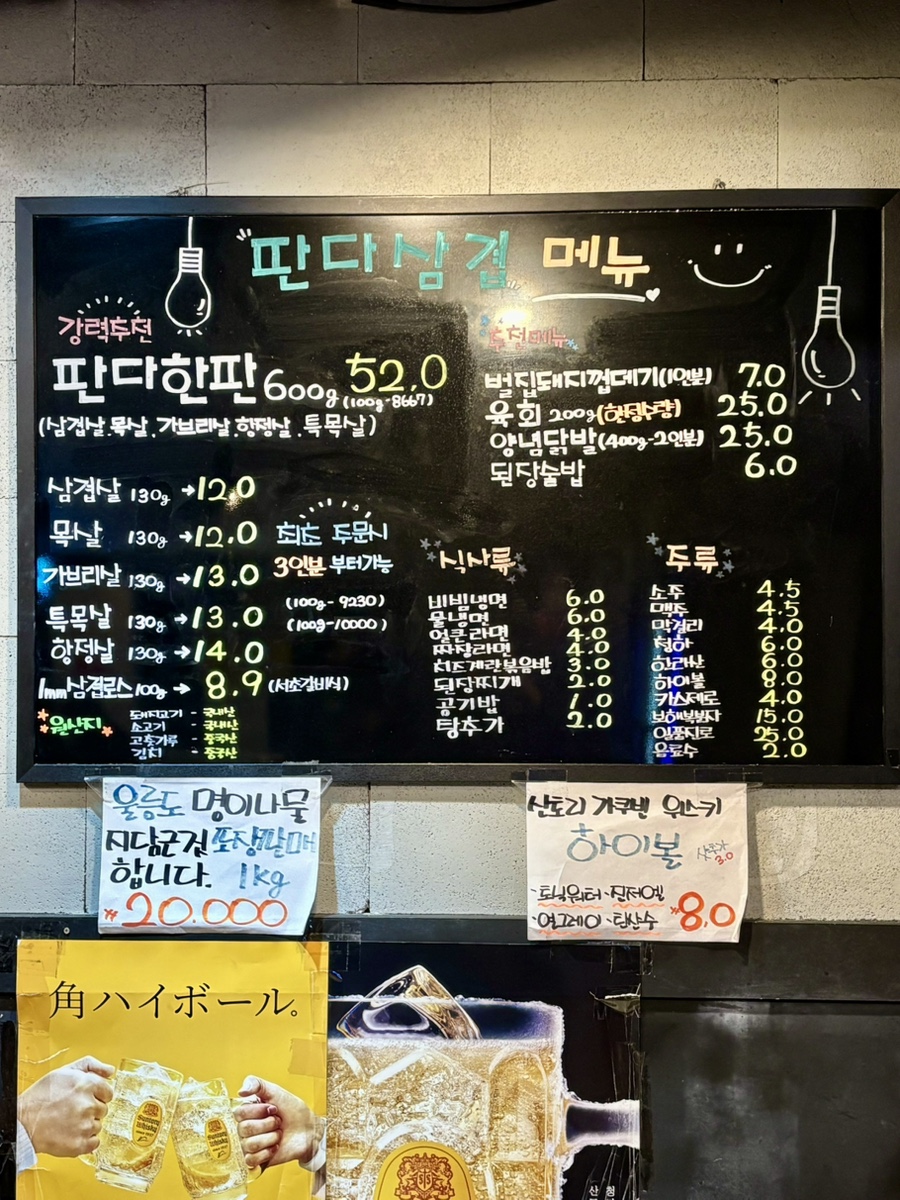 "판다삼겹" 메뉴
강력추천
판다한판 600g 52.0
(100g-8667)
(삼겹살.목살.가브리살.항정살.특목살)
삼겹살 130g → 12.0
목살 130g → 12.0
가브리살 130g → 13.0
특목살 130g → 13.0
항정살 130g → 14.0
1mm삼겹로스 100g → 8.9 (서초갈비식)
최초 주문시
3인분 부터가능
(100g-9230)
(100g-10000)
원산지
돼지고기 - 국내산
소고기 - 국내산
고춧가루 - 중국산
김치 - 중국산
추천메뉴
벌집돼지껍데기(1인분) 7.0
육회 200g(한정수량) 25.0
양념닭발(400g-2인분) 25.0
된장술밥 6.0
식사류
비빔냉면 6.0
물냉면 6.0
얼큰라면 4.0
짜장라면 4.0
치즈계란볶음밥 3.0
된장찌개 2.0
공기밥 1.0
탕추가 2.0
주류
소주 4.5
맥주 4.5
막걸리 4.0
청하 6.0
한라산 6.0
하이볼 8.0
카스제로 4.0
보해복분자 15.0
일품진로 25.0
음료수 2.0
울릉도 명이나물
지담근집 포장판매
합니다. 1kg
₩20.000
산토리 가쿠빈 위스키
하이볼
샷추가
3.0
·토닉워터 ·진저엘
·얼그레이 ·탄산수
₩8.0
角ハイボール。